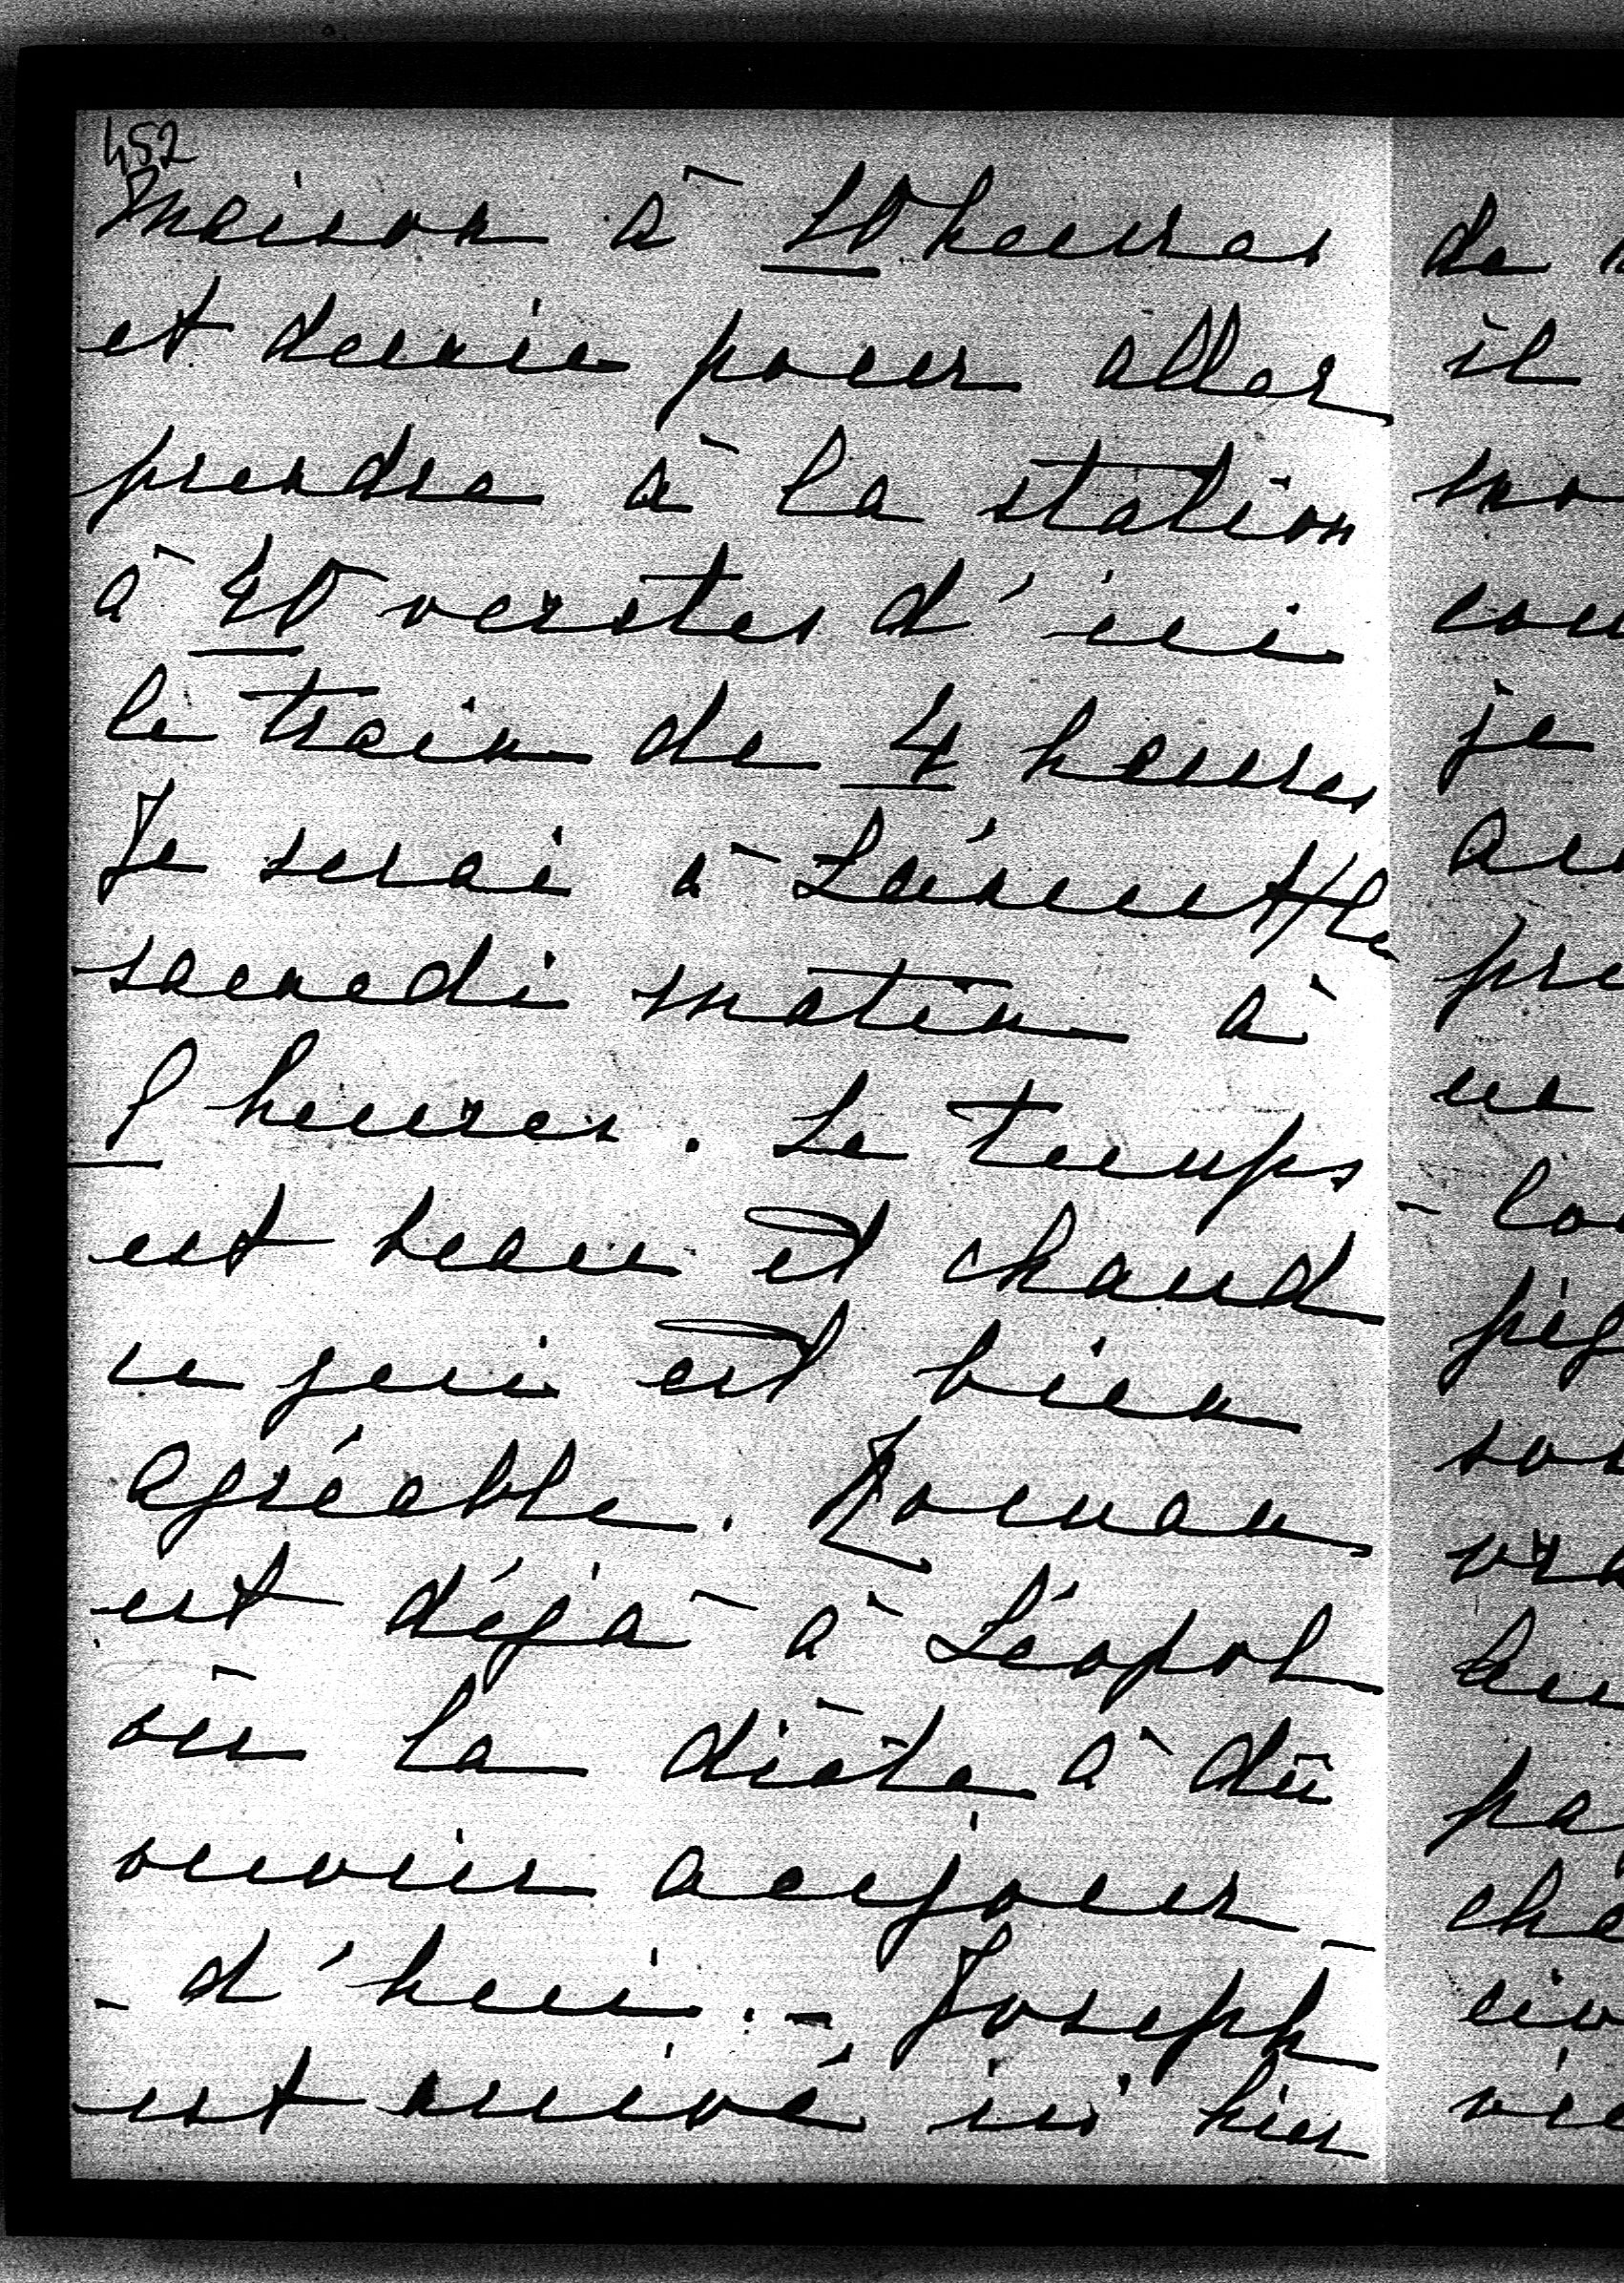 452
maison à 10 heures
et demie pour aller
prendre à la station
à 40 verstes d'ici
le train de 4 heures
Je serai à Łańcut le
samedi matin à
8 heures. Le temps
est beau et chaud
ce qui est bien
agréable. Roman
est déjà à Léopol
où la diète à dû
ouvrir aujour-
-d'hui. - Joseph
est arrivé ici hier
de
il
je
ne